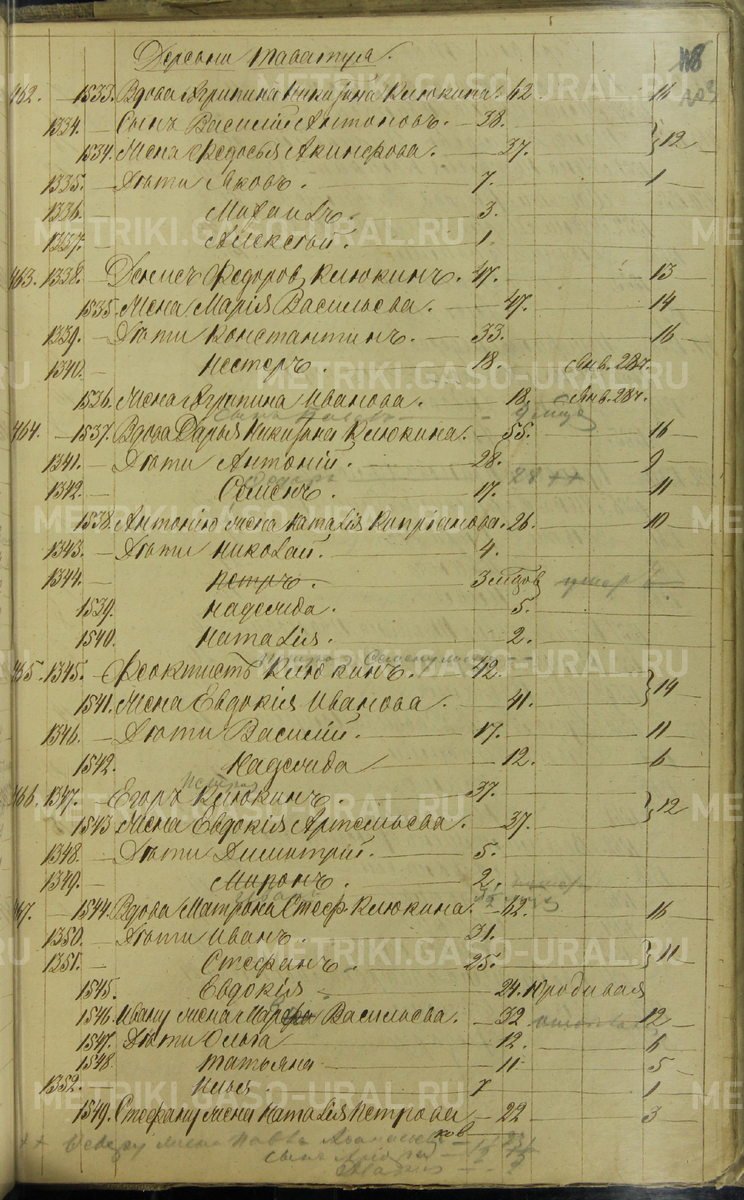 118
Деревни Таватуя.
462. 1533. Вдова Агрипина Никитина Клюкина 62. 16
1334. Сынъ Василiй Антоновъ. 38.
1534. Жена Федосья Акинфова. 37. } 12
1335. Дѣти Яковъ. 7. 1
1336. Михаилъ. 3.
1337. Алексѣй. 1.
463. 1338. Денисъ Федоровъ Клюкинъ. 47. 13
1535. Жена Марiя Васильева. 47. 14
1339. Дѣти Константинъ. 33. 16
1340. Нестеръ. 18. Янв. 28ч.
1536. Жена Агрипина Иванова. 18. Янв. 28ч.
464. 1537. Вдова Дарья Никитина Клюкина. 55. 16
1341. Дѣти Антонiй. 28. 9
1342. Семенъ. 17. 11
1538. Антонiю жена Наталiя Кипрiянова. 26. 10
1343. Дѣти Николай. 4.
1344. Петръ. 3
1539. Надежда. 5.
1540. Наталiя. 2.
465. 1345. Феоктистъ Клюкинъ. 42.
1541. Жена Евдокiя Иванова. 41. } 14
1346. Дѣти Василiй. 17. 11
1542. Надежда 12. 6
466. 1347. Егоръ Клюкинъ. 37.
1543. Жена Евдокiя Артемьева. 37. } 12
1348. Дѣти Димитрiй. 5.
1349. Миронъ. 2.
467. 1544. Вдова Матрона Стеф. Клюкина. 42. 16
1350. Дѣти Иванъ. 31.
1351. Стефанъ. 25. } 11
1545. Евдокiя 24. Юродивая
1546. Ивану жена Васильева. 32. 12
1547. Дѣти Ольга 12. 6
1548. Татьяна 11 5
1352. Илья. 7 1
1549. Стефану жена Наталiя Петрова 22 3